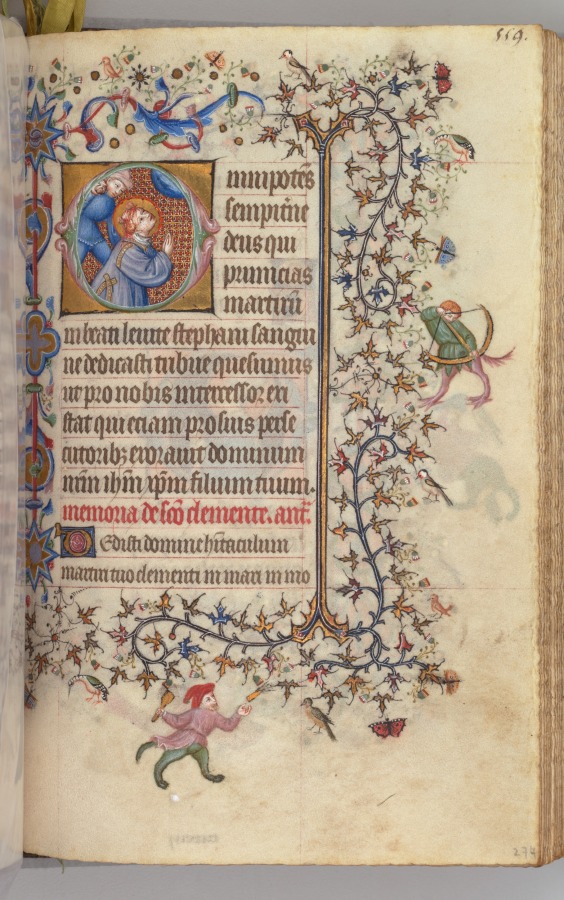 559.
mnipotēs
sempitne
deus qui
primicias
martirū
in beati leuite stephani sangui
ne dedicasti tribue quesumus
ut pro nobis intercessor exi
stat qui eciam pro suis perse
cutoribȝ exorauit dominum
nrm ihm xpm filium tuum.
memoria de sco clemente. ant.
Dedisti domine hitaculum
martiri tuo clementi in mari in mo
274